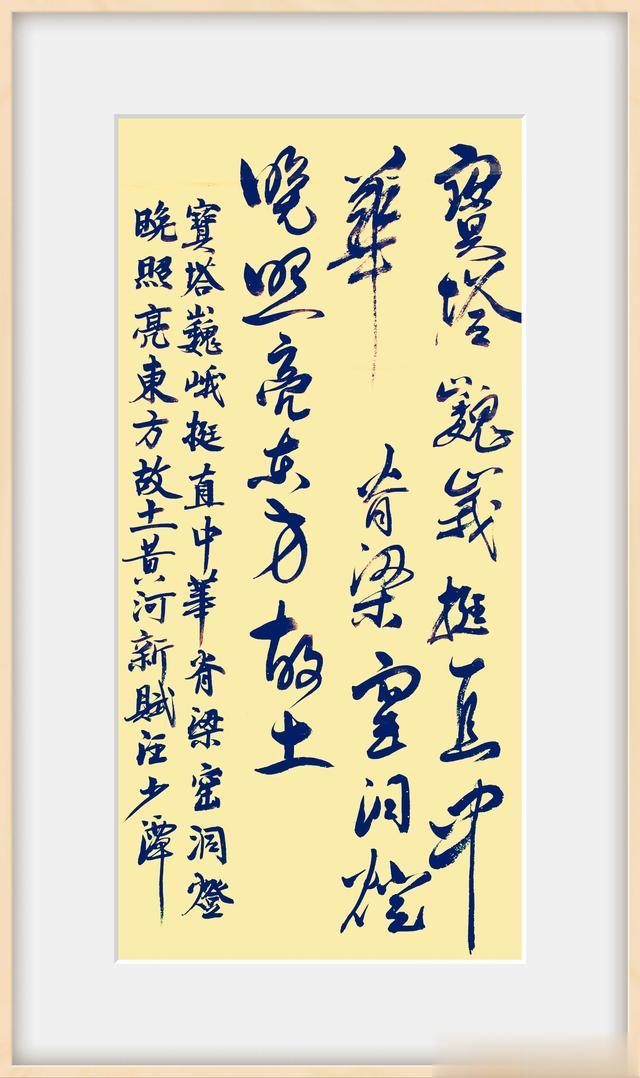 寶塔巍峩挺直中
華脊梁窑洞燈
晚照亮东方故土
寶塔巍峨挺直中華脊梁窑洞燈
晚照亮東方故土黄河新賦汪少潭